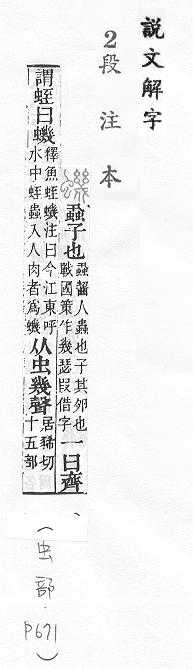 說文解字
2段注本
蟣蝨子也蝨齧人蟲也子其卵也戰國策作幾瑟叚借字一曰齊
謂蛭曰蟣釋魚蛭蟣注曰今江東呼水中蛭蟲入人肉者爲蟣从虫幾聲居狶切十五部
(虫部.P671)